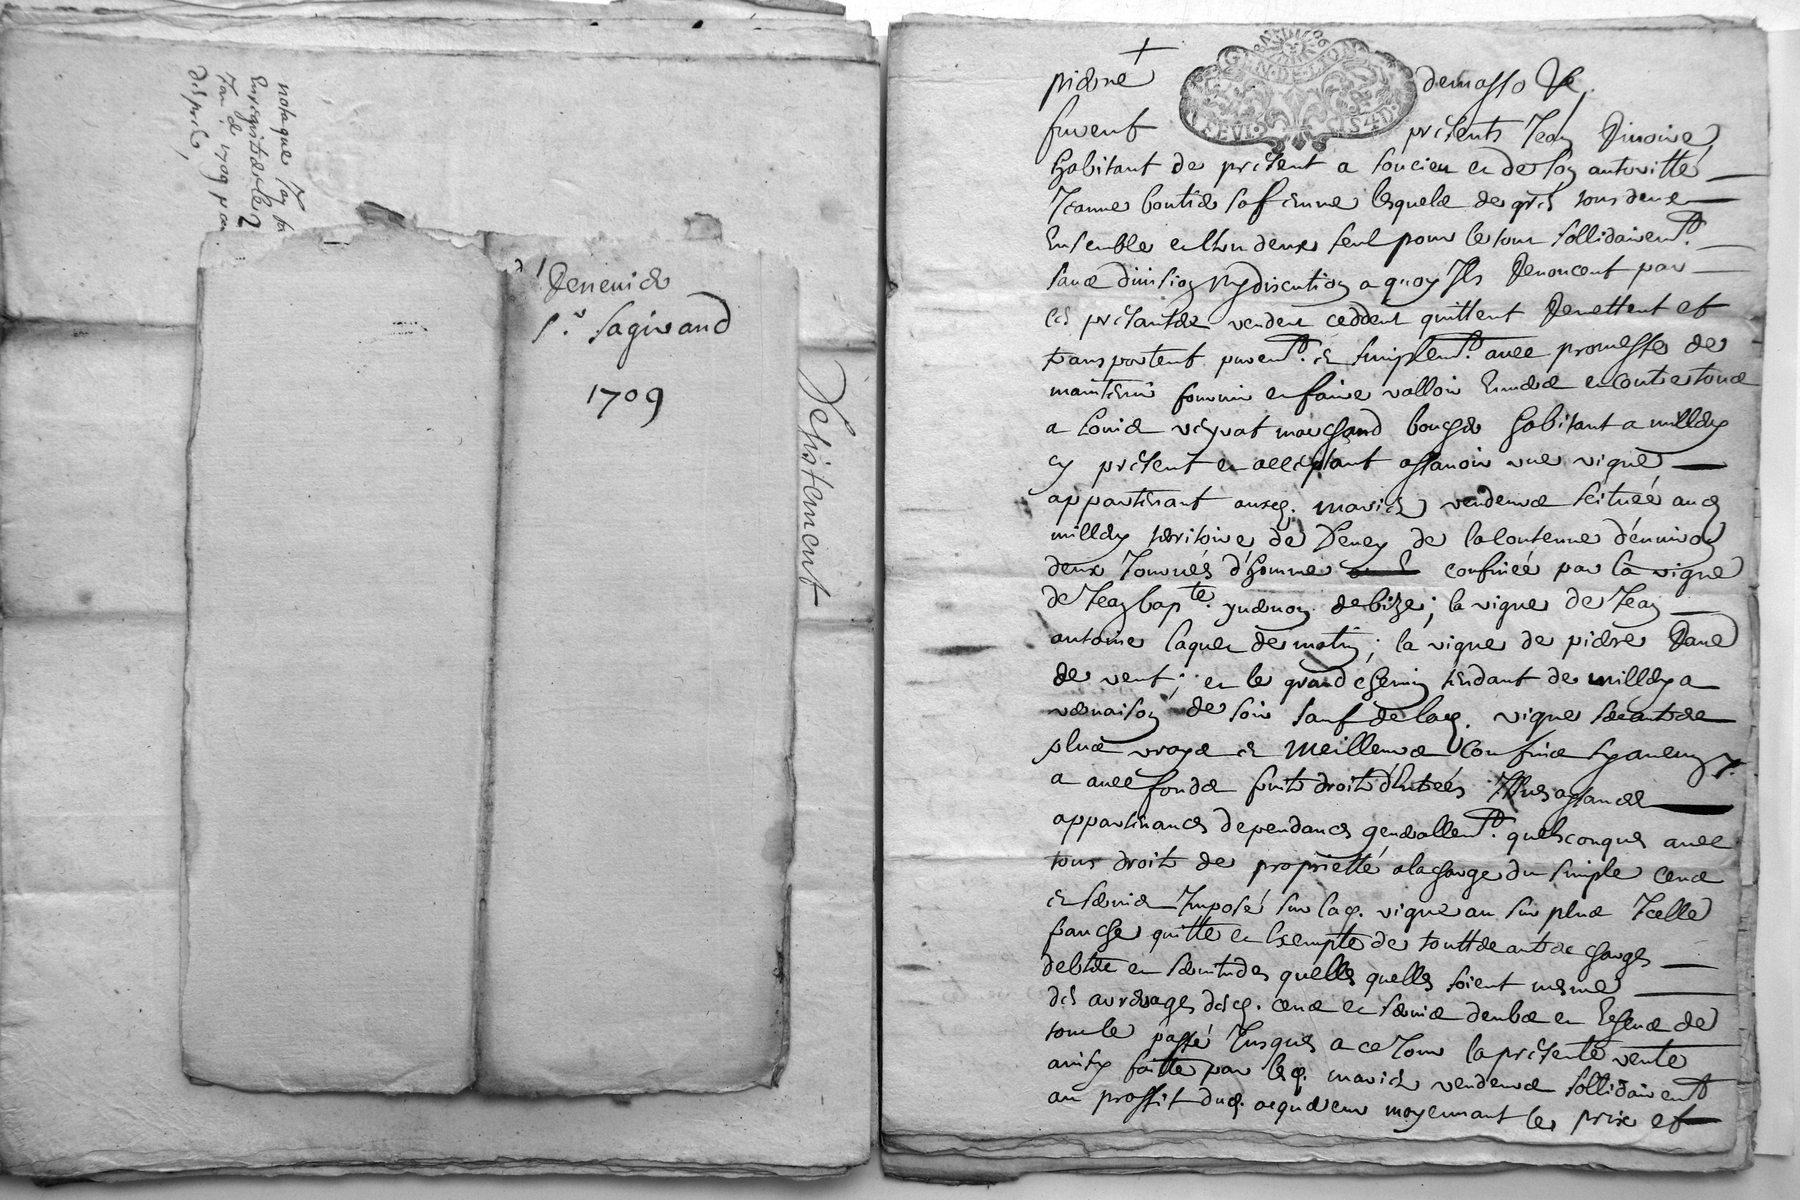 notaque
Enregistré le 2
Jan. de 1709 par
Desistement
1709
pierre demasso
furent présents Jean
habitant de présent a soucieu et de soy authoritté
Jeanne sa femme lesquels de gré tous deux
Ensemble et lun deux seul pour le tout sollidairemt.
sans division ny discution a quoy Ils Renoncent par
ces présantes vendent ceddent quittent Remettent et
transportent puremt. et simplemt. avec promesse de
maintenir fournir et faire valloir Envers et contre tous
a Louis veyrat marchand boucher habitant a millery
cy présent et acceptant assavoir une vigne
appartenant ausd. mariés vendeurs scituée aud
millery territoire de de la contenue d'environ
deux Journés d'homme confinée par la vigne
de Jean bapte. de bize; la vigne de Jean
antoine de matin; la vigne de pierre
de vent; et le grand chemin tendant de millery a
vernaison de soir sauf de lad. vigne ses autres
plus vrays et meilleurs confins sy aucuns
a avec fonds fruits droits d'Entrées Issues aysances
appartenances dependances generallemt. quelsconques avec
tous droits de proprietté a la charge du simple cens
et servis Imposé sur lad. vigne au surplus Icelle
franche quitte et Exempte de touttes autres charges
debtes et servitudes quelles quelles soient mesme
des arrérages desd. cens et servis deubs et Escheus de
tout le passé Jusques a ce Jour la présente vente
ainsy faitte par lesd. mariés vendeurs sollidairemt
au proffit dud. acquereur moyennant le prix et